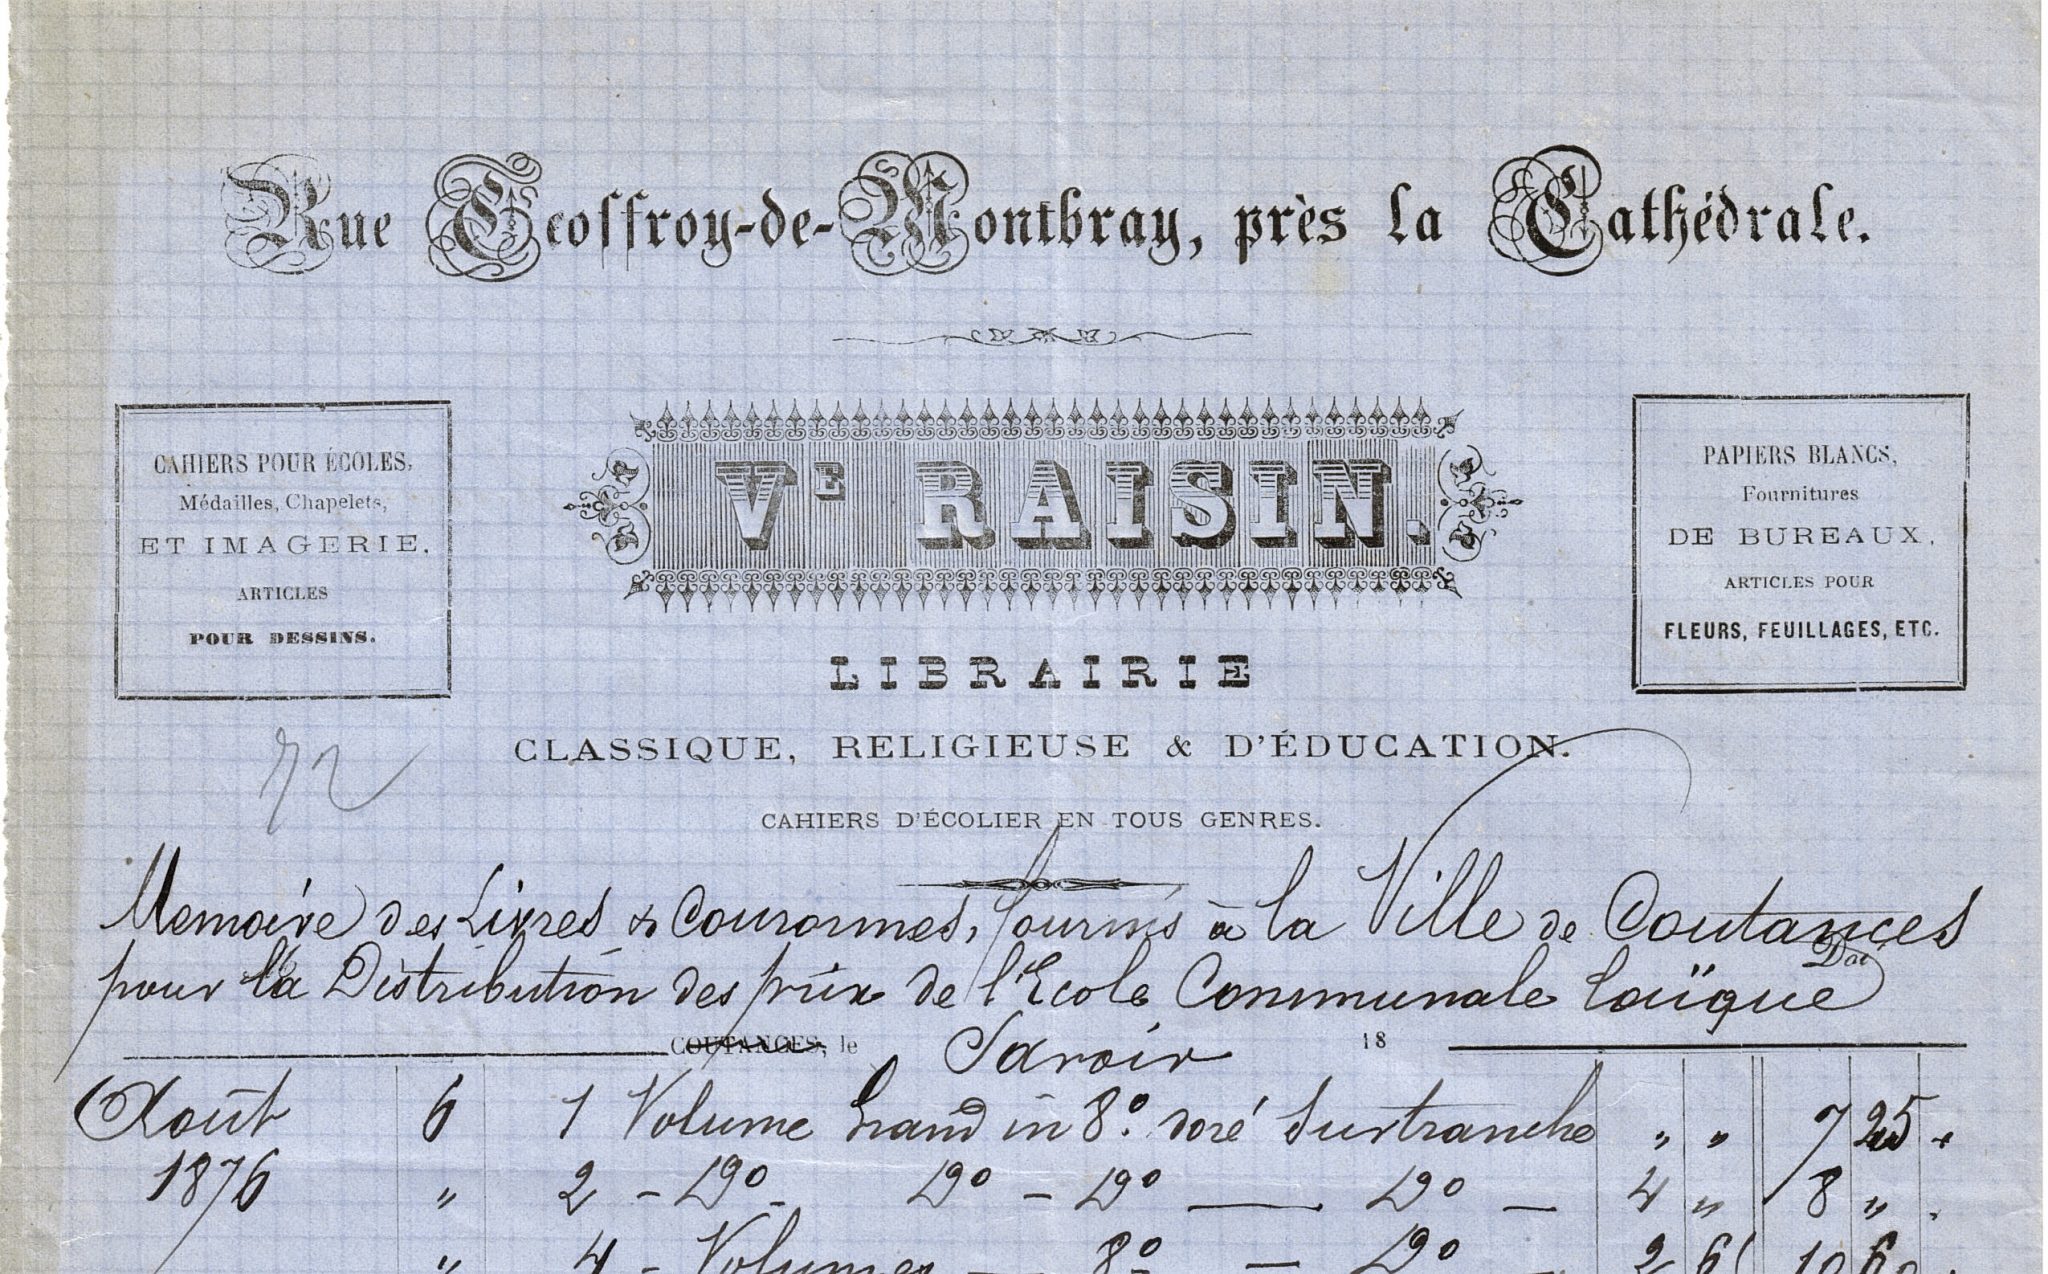 Rue Geoffroy-de-Montbray, près la Cathédrale.
CAHIERS POUR ÉCOLES,
Médailles, Chapelets,
ET IMAGERIE.
ARTICLES
POUR DESSINS.
VE RAISIN.
PAPIERS BLANCS,
Fournitures
DE BUREAUX,
ARTICLES POUR
FLEURS, FEUILLAGES, ETC.
LIBRAIRIE
CLASSIQUE, RELIGIEUSE & D'ÉDUCATION.
CAHIERS D'ÉCOLIER EN TOUS GENRES.
Memoire des Livres & Couronnes, fournis à la Ville de Coutances
pour la Distribution des prix de l'Ecole Communale laïque
COUTANCES, le Savoir 18
Août 6 1 Volume Grand in 8º doré Surtranche " " 7 25
1876 " 2 - Dº - Dº - Dº — Dº — 4 " 8 "
" 4 - Volumes — 8º — Dº — 2 6 10 60